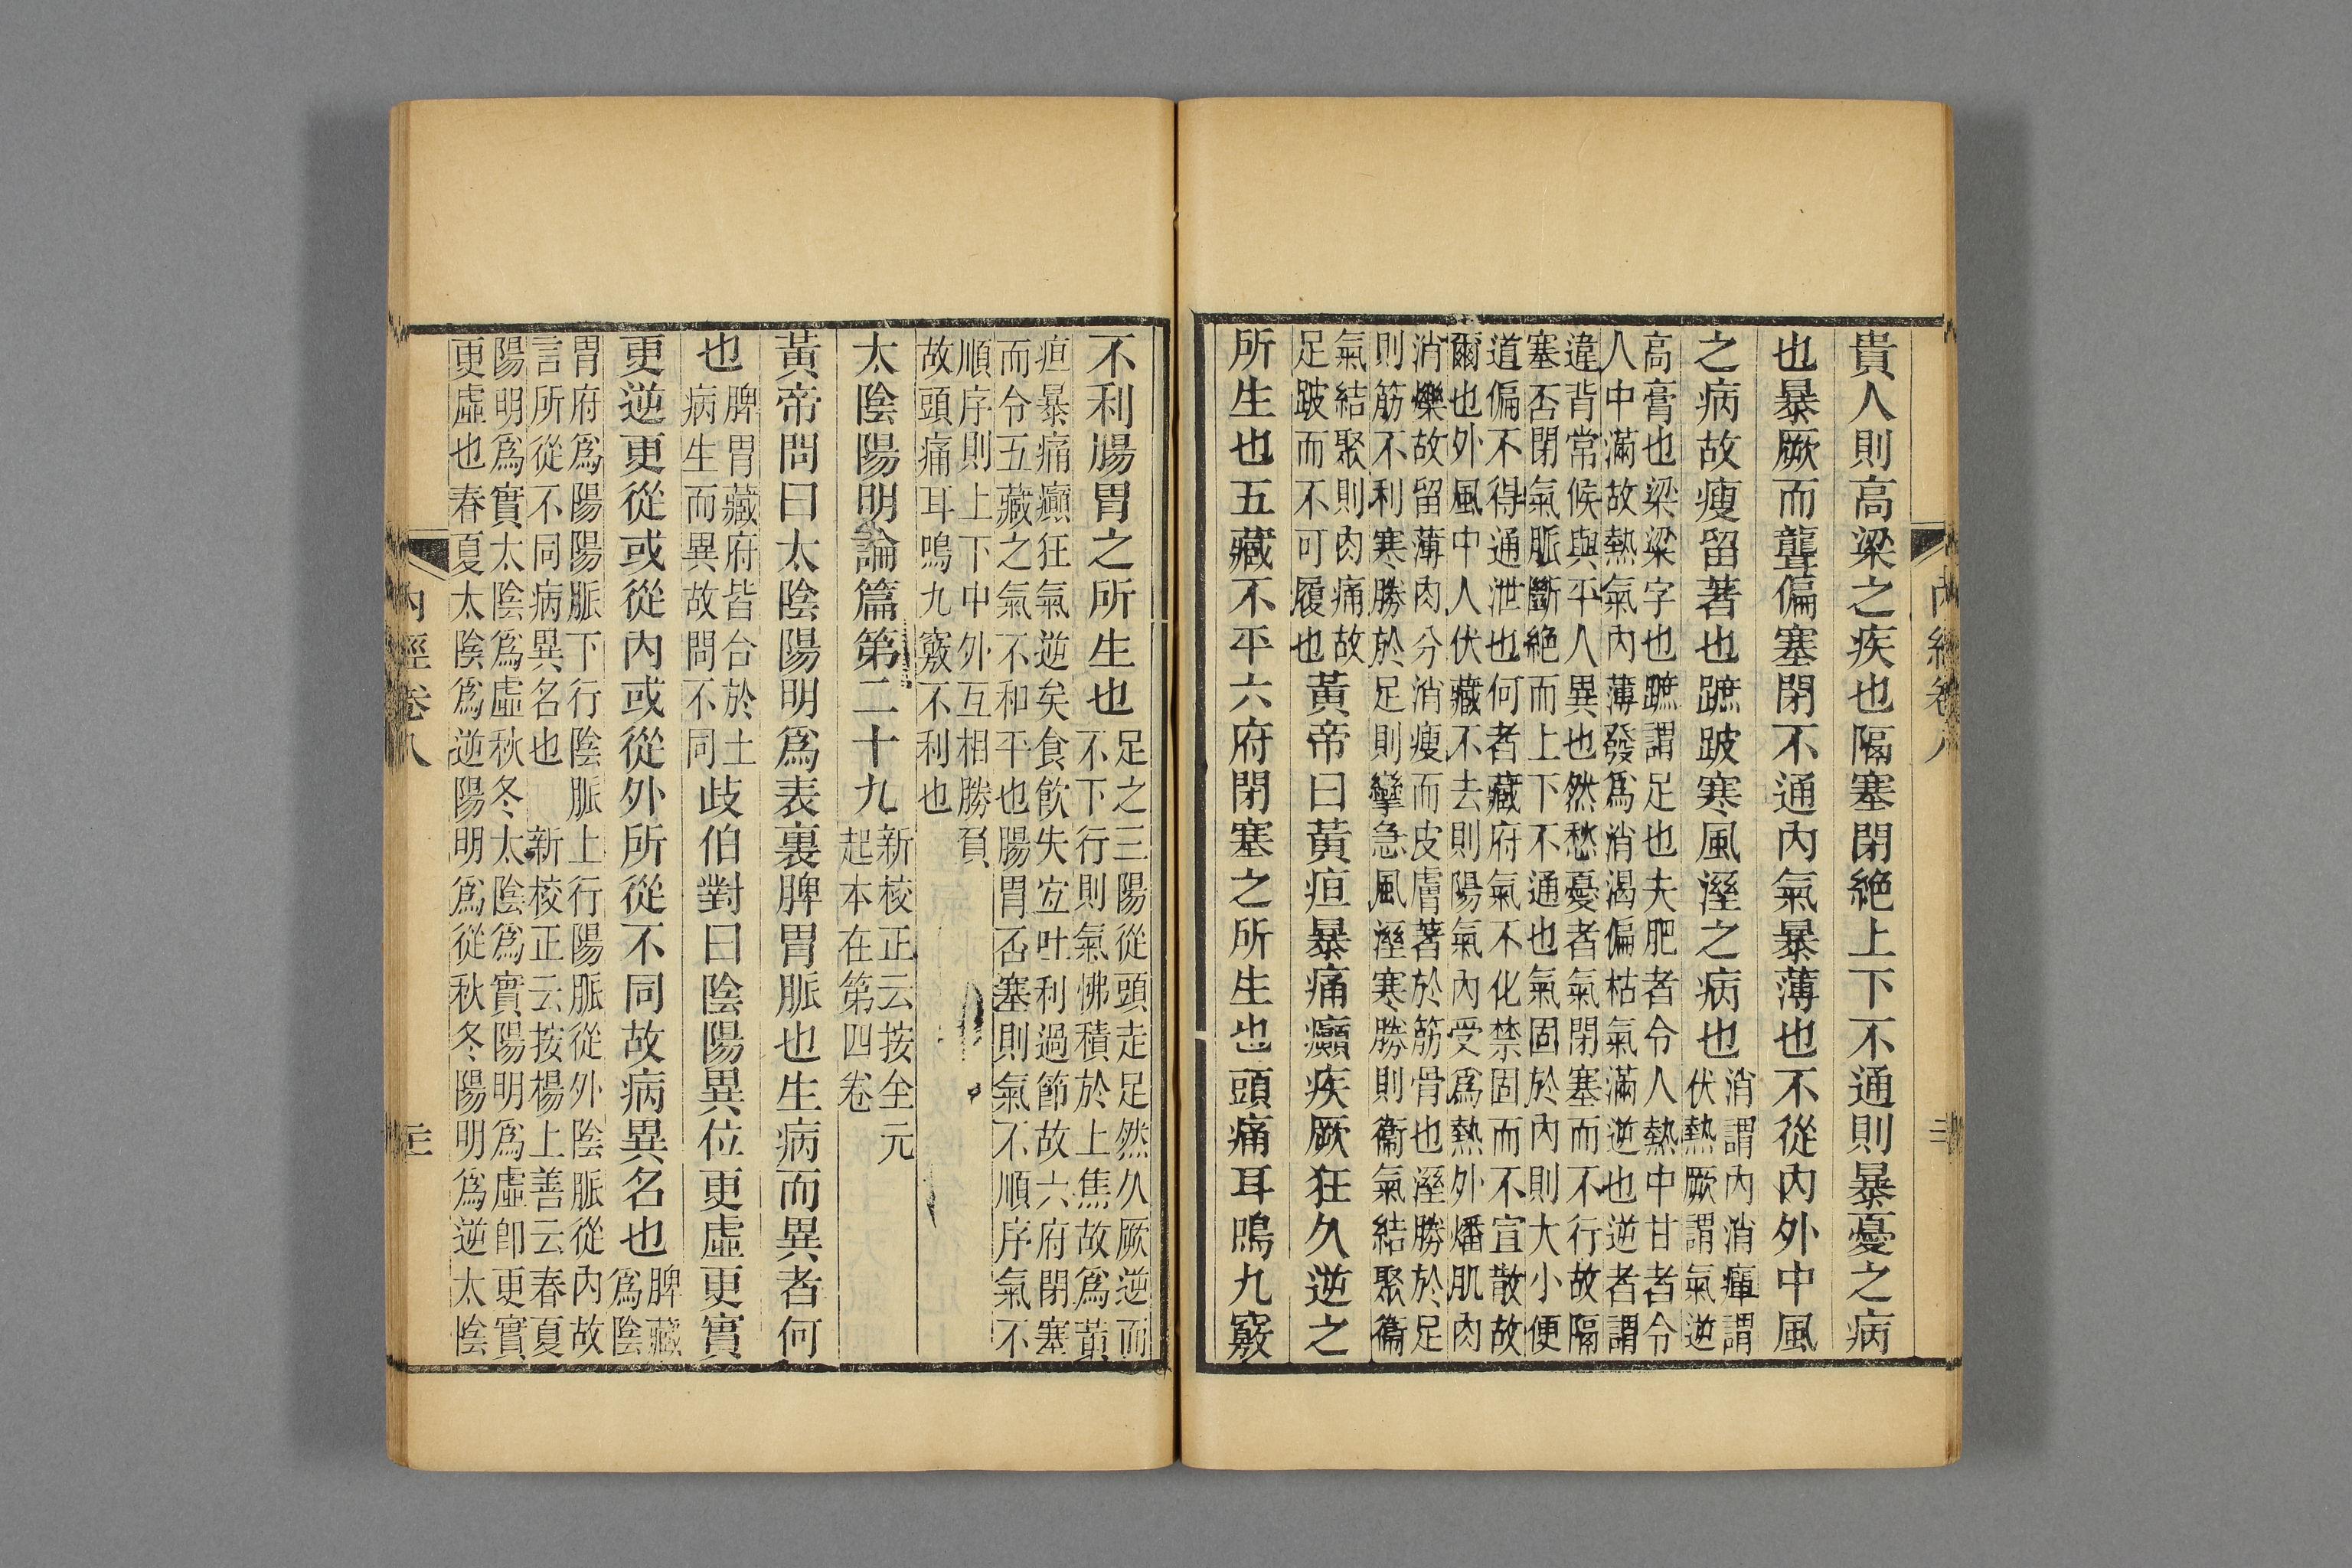 貴人則高梁之疾也隔塞閉絕上下不通則暴憂之病
也暴厥而聾偏塞閉不通內氣暴薄也不從內外中風
之病故瘦留著也蹠跛寒風溼之病也
消謂內消癉謂
伏熱厥謂氣逆
高膏也梁粱字也蹠謂足也夫肥者令人熱中甘者令
人中滿故熱氣內薄發爲消渴偏枯氣滿逆也逆者謂
違背常候與平人異也然愁憂者氣閉塞而不行故隔
塞否閉氣脈斷絕而上下不通也氣固於內則大小便
道偏不得通泄也何者藏府氣不化禁固而不宣散故
爾也外風中人伏藏不去則陽氣內受爲熱外燔肌肉
消爍故留薄肉分消瘦而皮膚著於筋骨也溼勝於足
則筋不利寒勝於足則攣急風溼寒勝則衞氣結聚衞
氣結聚則肉痛故
足跛而不可履也
黃帝曰黃疸暴痛癲疾厥狂久逆之
所生也五藏不平六府閉塞之所生也頭痛耳鳴九竅
不利腸胃之所生也
足之三陽從頭走足然久厥逆而
不下行則氣怫積於上焦故爲黃
疸暴痛癲狂氣逆矣食飲失宜吐利過節故六府閉塞
而令五藏之氣不和平也腸胃否塞則氣不順序氣不
順序則上下中外互相勝負
故頭痛耳鳴九竅不利也
太陰陽明論篇第二十九
新校正云按全元
起本在第四卷
黃帝問曰太陰陽明爲表裏脾胃脈也生病而異者何
也
脾胃藏府皆合於土
病生而異故問不同
歧伯對曰陰陽異位更虛更實
更逆更從或從內或從外所從不同故病異名也
脾藏
爲陰
胃府爲陽陽脈下行陰脈上行陽脈從外陰脈從內故
言所從不同病異名也 新校正云按楊上善云春夏
陽明爲實太陰爲虛秋冬太陰爲實陽明爲虛卽更實
更虛也春夏太陰爲逆陽明爲從秋冬陽明爲逆太陰
內經卷八